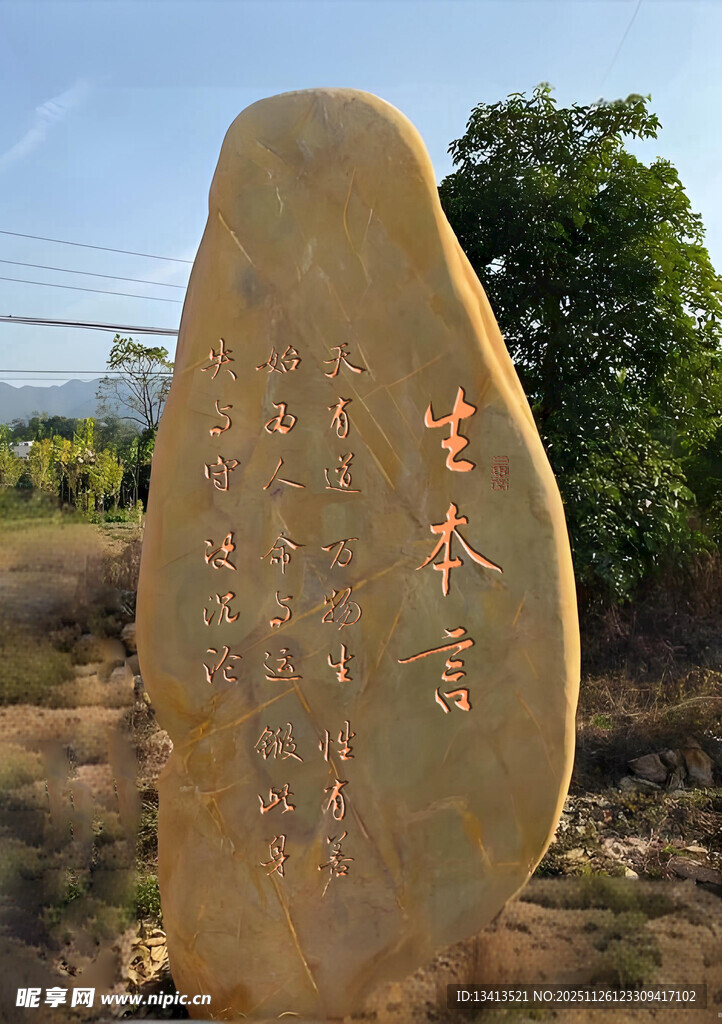 生本言
天有道 万物生 性有善
始为人 命与运 锻此身
失与守 没沉沦
昵享网 www.nipic.cn
ID:13413521 NO:20251126123309417102